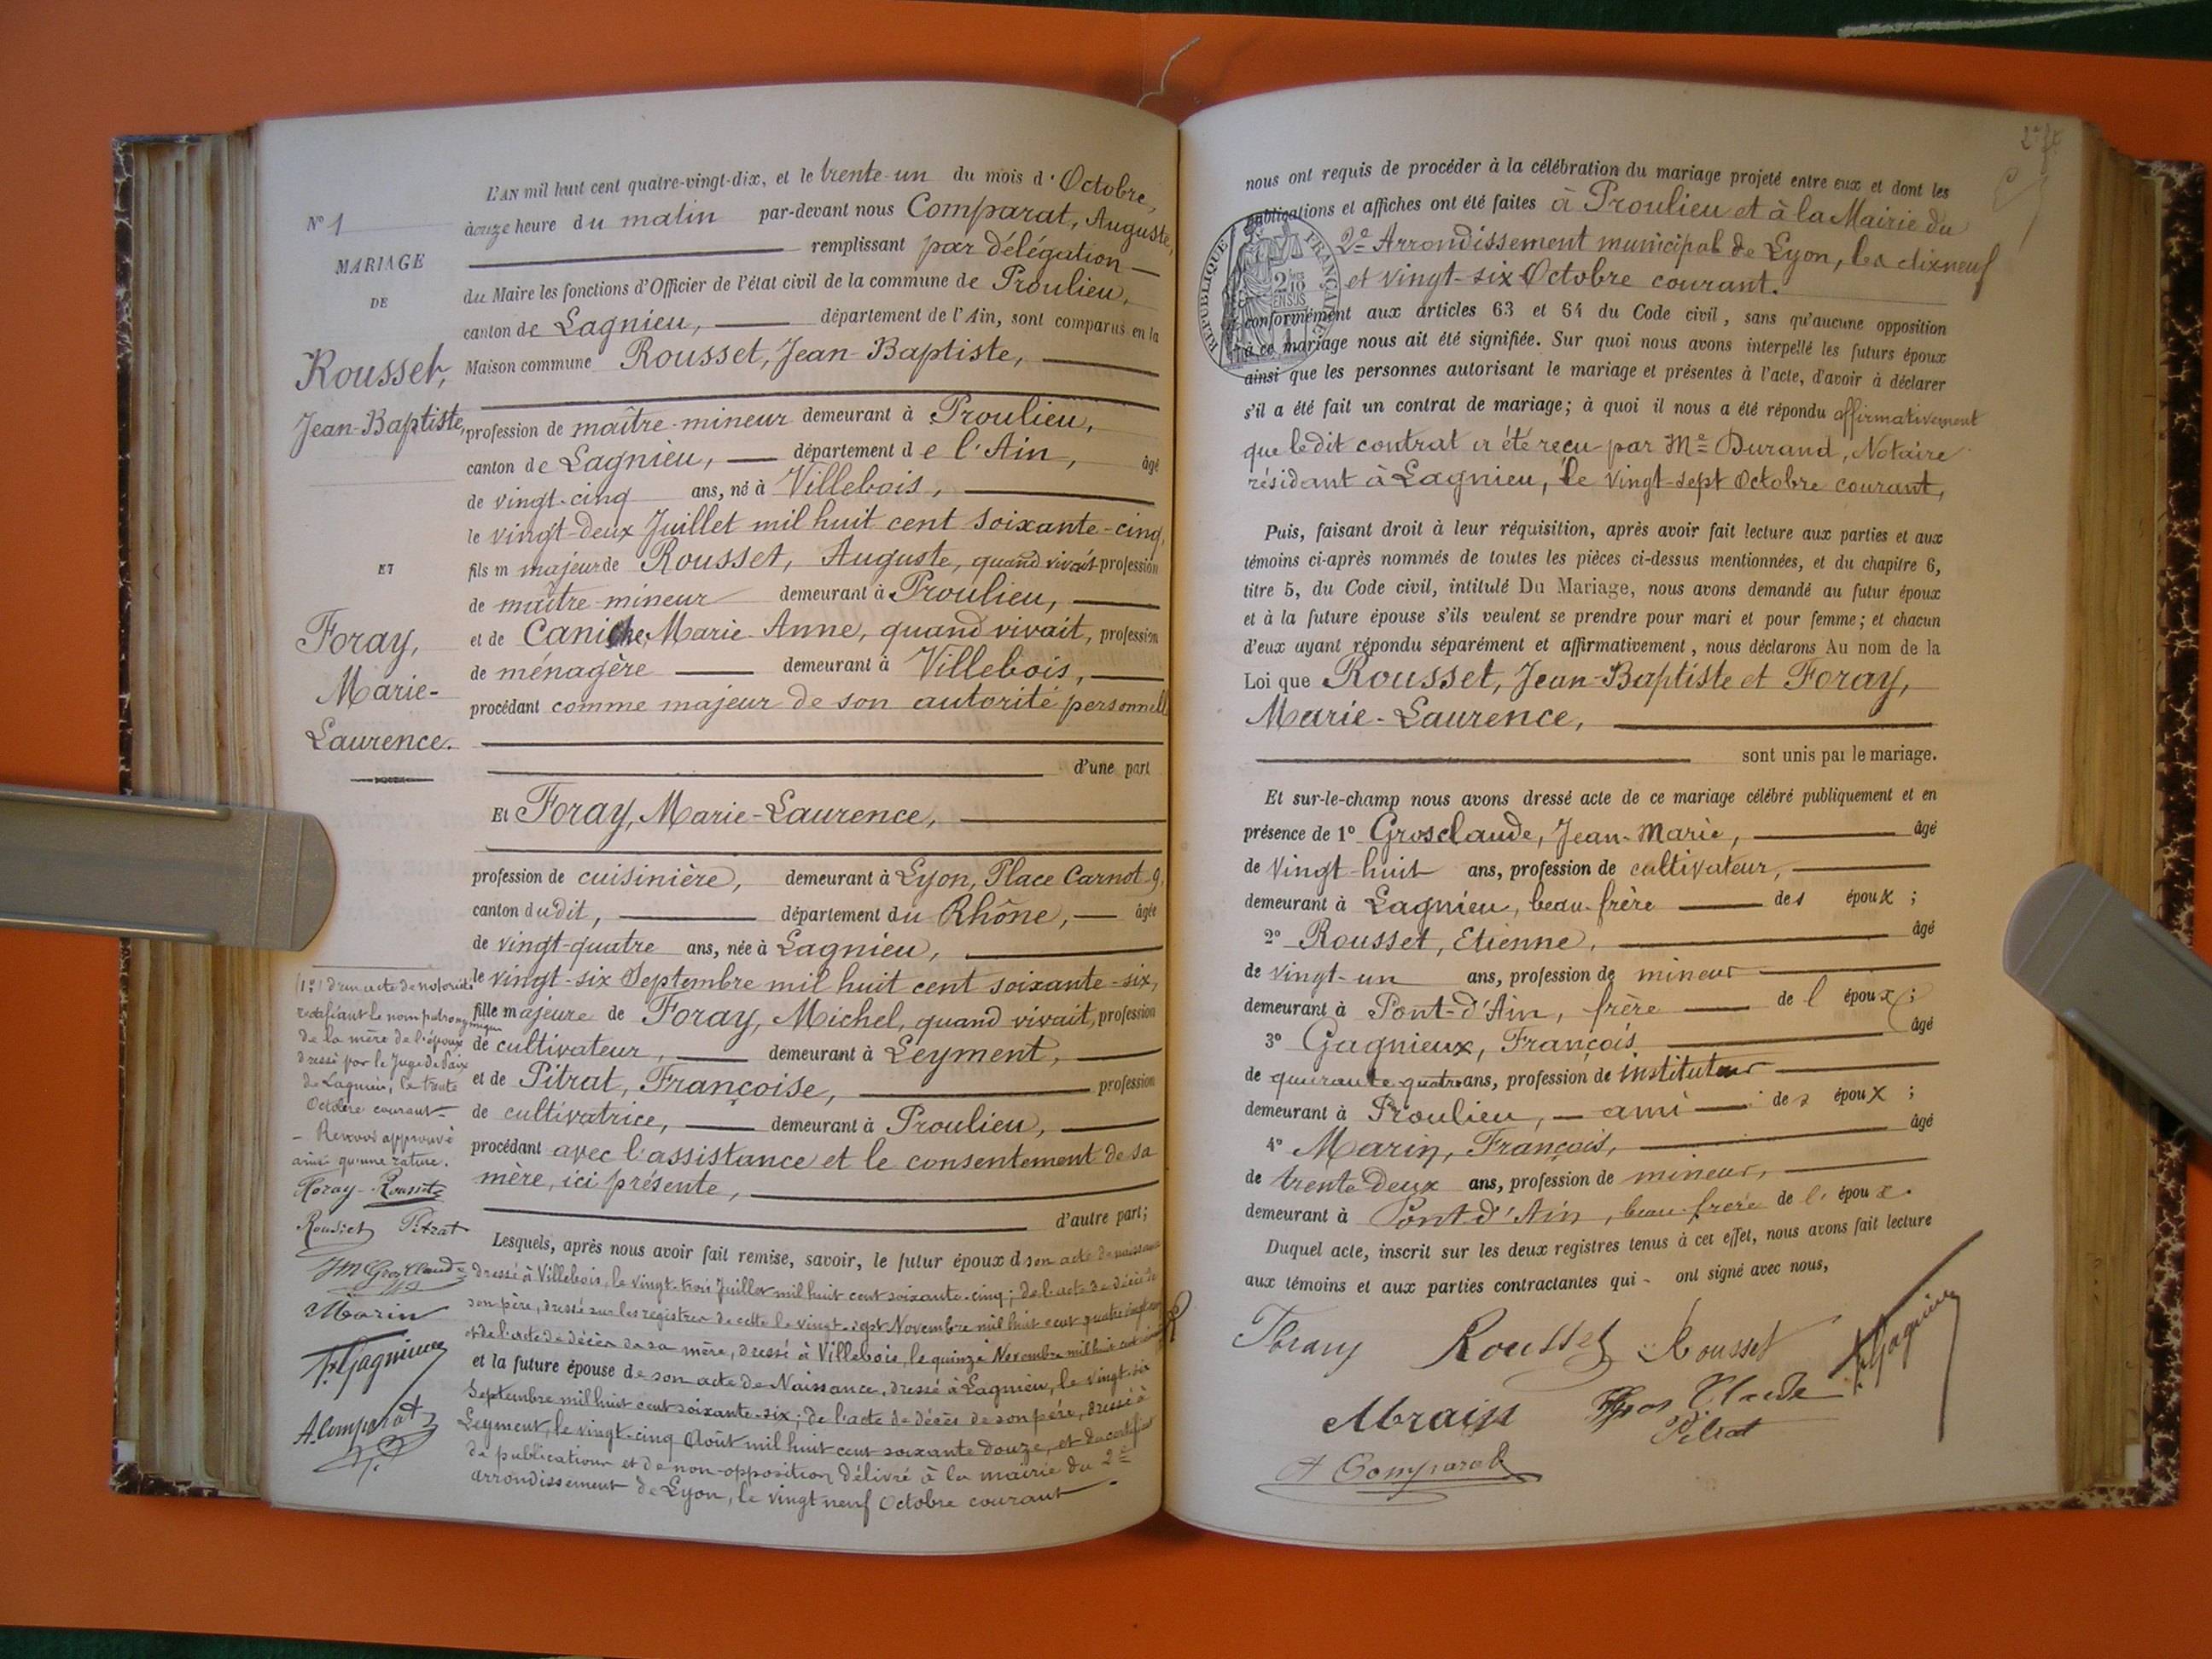 N° 1
MARIAGE
DE
Rousset,
Jean-Baptiste,
ET
Foray,
Marie-
Laurence.
L'AN mil huit cent quatre-vingt-dix, et le trente-un du mois d'Octobre,
à onze heure du matin par-devant nous Comparat, Auguste,
remplissant par délégation
du Maire les fonctions d'Officier de l'état civil de la commune de Proulieu,
canton de Lagnieu, département de l'Ain, sont comparus en la
Maison commune Rousset, Jean-Baptiste,
profession de maître-mineur demeurant à Proulieu,
canton de Lagnieu, département de l'Ain, âgé
de vingt-cinq ans, né à Villebois,
le vingt-deux Juillet mil huit cent soixante-cinq,
fils m majeur de Rousset, Auguste, quand vivait profession
de maître-mineur demeurant à Proulieu,
et de Caniche Marie-Anne, quand vivait, profession
de ménagère demeurant à Villebois,
procédant comme majeur de son autorité personnelle
d'une part
Et Foray, Marie-Laurence,
profession de cuisinière, demeurant à Lyon, Place Carnot 9,
canton dudit, département du Rhône, âgée
de vingt-quatre ans, née à Lagnieu,
le vingt-six Septembre mil huit cent soixante-six,
fille majeure de Foray, Michel, quand vivait, profession
de cultivateur, demeurant à Leyment,
et de Pitrat, Françoise, profession
de cultivatrice, demeurant à Proulieu,
procédant avec l'assistance et le consentement de sa
mère, ici présente,
d'autre part;
Lesquels, après nous avoir fait remise, savoir, le futur époux d son acte de naissance
dressé à Villebois, le vingt-trois Juillet mil huit cent soixante-cinq; de l'acte de décès de
son père, dressé sur les registres de cette le vingt-sept Novembre mil huit cent quatre-vingt
et de l'acte de décès de sa mère, dressé à Villebois, le quinze Novembre mil huit cent
et la future épouse de son acte de Naissance, dressé à Lagnieu, le vingt-six
Septembre mil huit cent soixante-six; de l'acte de décès de son père, dressé à
Leyment, le vingt-cinq Août mil huit cent soixante douze, et du certificat
de publications et de non-opposition délivré à la mairie du 2e
arrondissement de Lyon, le vingt neuf Octobre courant.
(1°) d'un acte de notoriété
rectifiant le nom patronymique
de la mère de l'époux
dressé par le Juge de Paix
de Lagnieu, le trente
Octobre courant
- Renvoi approuvé
ainsi qu'une rature.
Foray - Rousset
Rousset Pitrat
JM Gros Claude
Marin
F. Gagnieux
A. Comparat
nous ont requis de procéder à la célébration du mariage projeté entre eux et dont les
publications et affiches ont été faites à Proulieu et à la Mairie du
2e Arrondissement municipal de Lyon, les dix neuf
et vingt-six Octobre courant.
RÉPUBLIQUE FRANÇAISE
2/10 EN SUS
conformément aux articles 63 et 64 du Code civil, sans qu'aucune opposition
à ce mariage nous ait été signifiée. Sur quoi nous avons interpellé les futurs époux
ainsi que les personnes autorisant le mariage et présentes à l'acte, d'avoir à déclarer
s'il a été fait un contrat de mariage; à quoi il nous a été répondu affirmativement
que ledit contrat a été reçu par Me Durand, Notaire
résidant à Lagnieu, le vingt-sept Octobre courant,
Puis, faisant droit à leur réquisition, après avoir fait lecture aux parties et aux
témoins ci-après nommés de toutes les pièces ci-dessus mentionnées, et du chapitre 6,
titre 5, du Code civil, intitulé Du Mariage, nous avons demandé au futur époux
et à la future épouse s'ils veulent se prendre pour mari et pour femme; et chacun
d'eux ayant répondu séparément et affirmativement, nous déclarons Au nom de la
Loi que Rousset, Jean-Baptiste et Foray,
Marie-Laurence,
sont unis par le mariage.
Et sur-le-champ nous avons dressé acte de ce mariage célébré publiquement et en
présence de 1° Grosclaude, Jean-Marie, âgé
de vingt-huit ans, profession de cultivateur,
demeurant à Lagnieu, beau-frère des époux;
2° Rousset, Etienne, âgé
de vingt-un ans, profession de mineur
demeurant à Pont-d'Ain, frère de l époux;
3° Gagnieux, François âgé
de quarante quatre ans, profession de instituteur
demeurant à Proulieu, - ami - des époux;
4° Marin, François, âgé
de trente Deux ans, profession de mineur,
demeurant à Pont-d'Ain, beau-frère de l'époux.
Duquel acte, inscrit sur les deux registres tenus à cet effet, nous avons fait lecture
aux témoins et aux parties contractantes qui - ont signé avec nous,
Foray Rousset Rousset F. Gagnieux
Marin Gros Claude
Pitrat
A Comparat